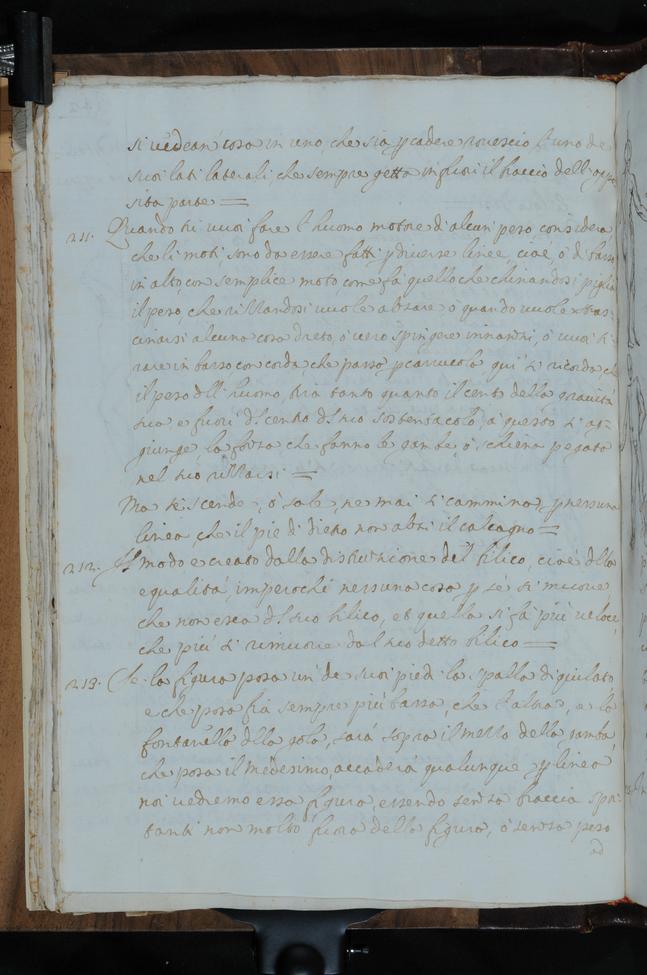 si vedean' cosa in uno, che sia p cadere rovescio l'uno de
suoi lati laterali, che sempre getta in fuori il braccio dell'oppo
sita parte =
211. Quando tu vuoi fare l'huomo motore d'alcun peso considera
che li moti sono da essere fatti p diverse linee, cioé, ò di basso
in alto, con semplice moto come fà quello che chinandosi piglia
il peso, che rizzandosi vuole alzare ò quando vuole stras=
cinarsi alcuna cosa dietro, ò vero spingere innanzi, ò vuol ti=
rare in basso con corda che passa p carrucola qui si ricorda che
il peso dll'huomo, tira tanto quanto il cento della gravità
sua e fuori dl centro dl suo sostentacolo, à questo s'ag=
giunge la forza che fanno le gambe, ò schiena pegata
nel suo rizzarsi =
Ma si scende, ò sale, ne mai si cammina p nessuna
linea che il piè di dietro non alzi il calcagno =
212. Il modo e creato dalla distruzione del bilico, cioé dlla
equalità, imperoché nessuna cosa p sé si muove
che non esca dl suo bilico, et quella si fà più veloce
che più si rimuove dal suo detto bilico =
213. Se la figura posa un' de suoi piedi la spalla di quel lato
e che posa fia sempre più bassa, che l'altra, e la
fontanella dlla gola, sarà sopra il mezzo della gamba
che posa il medesimo, accaderà qualunque p linea
noi vedremo essa figura, essendo senza braccia spor=
tanti non molto fuora della figura, ò senza peso
ad